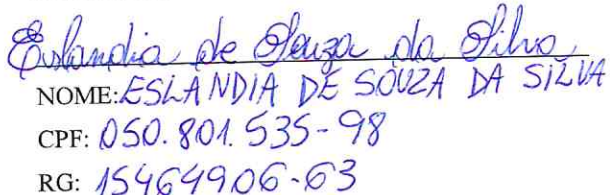 Eslandia de Souza da Silva
NOME: ESLANDIA DE SOUZA DA SILVA
CPF: 050.801.535-98
RG: 15464906-63